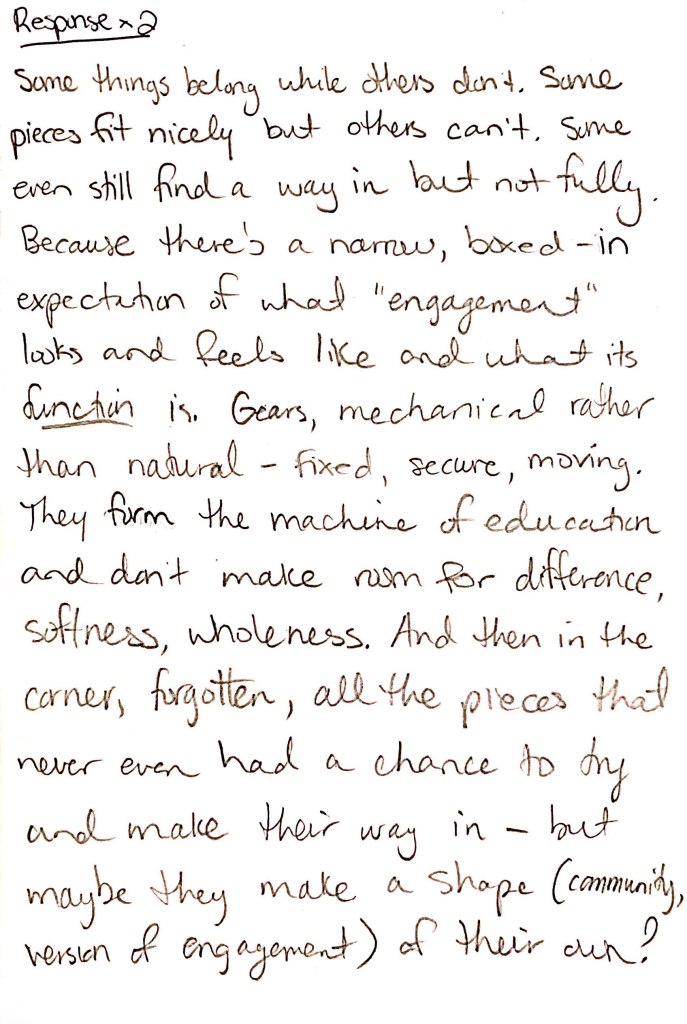 Response x 2
Some things belong while others don't. Some
pieces fit nicely but others can't. Some
even still find a way in but not fully.
Because there's a narrow, boxed-in
expectation of what "engagement"
looks and feels like and what its
function is. Gears, mechanical rather
than natural - fixed, secure, moving.
They form the machine of education
and don't make room for difference,
softness, wholeness. And then in the
corner, forgotten, all the pieces that
never even had a chance to try
and make their way in - but
maybe they make a shape (community,
version of engagement) of their own?